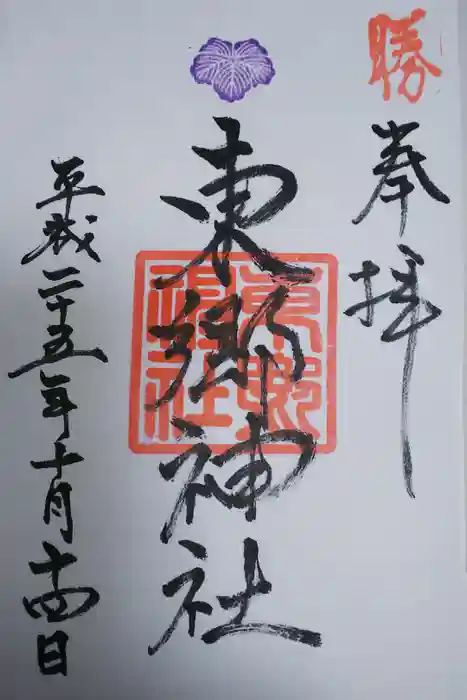 勝
奉拝
東郷神社
東郷神社
平成二十五年十月十四日